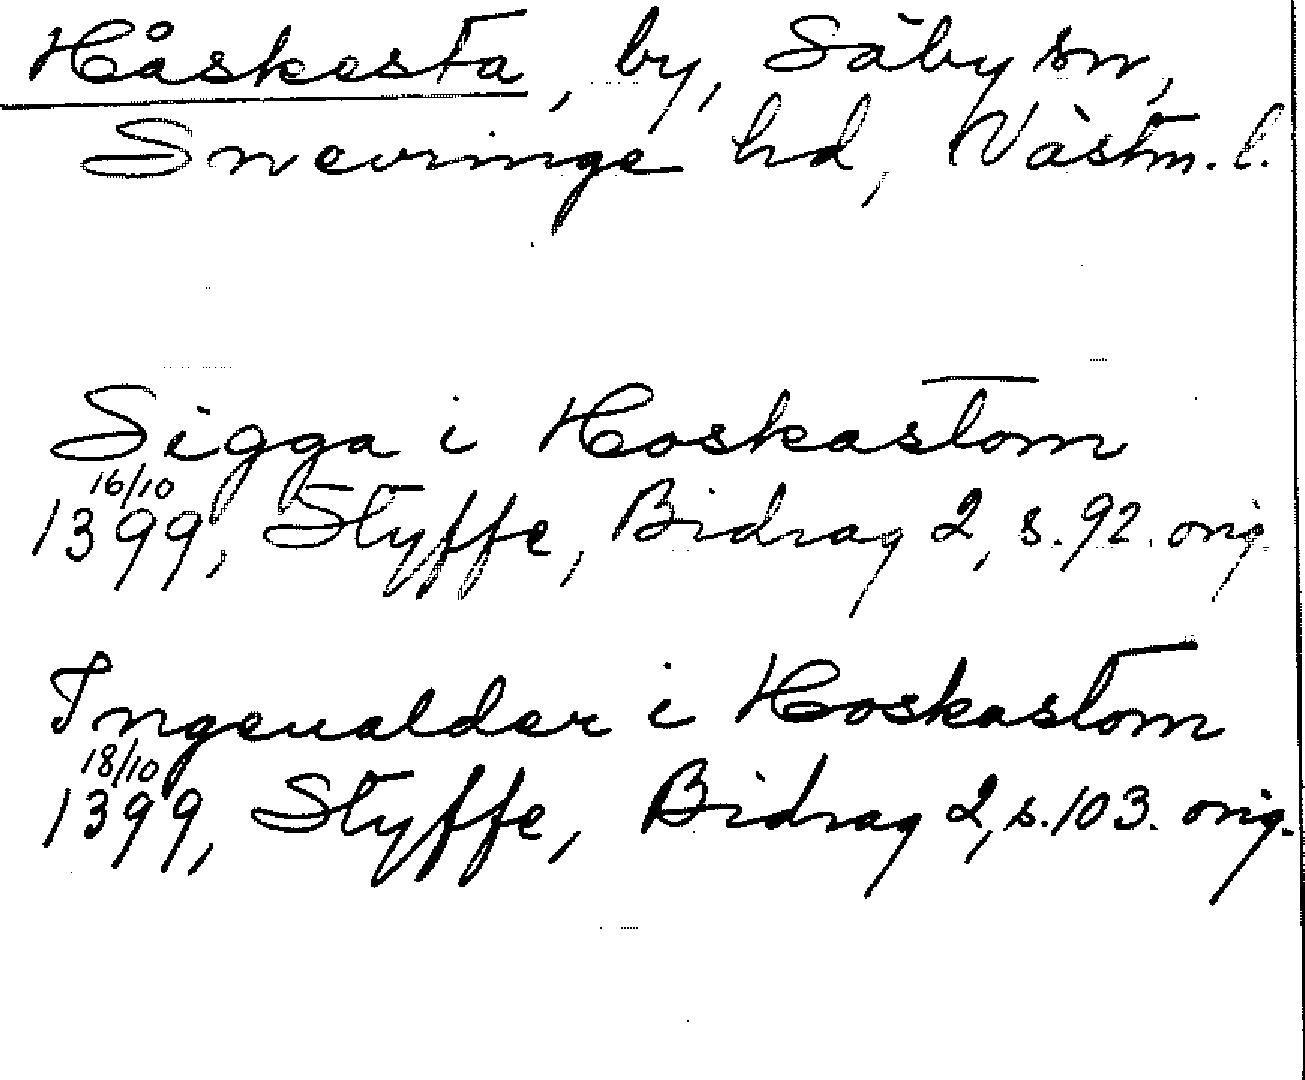 Håskesta, by, Säby sn,
Snevringe hd, Västm. l.
Sigga i Hoskastom
16/10
1399, Styffe, Bidrag 2, s. 92. orig.
Ingeualder i Hoskastom
18/10
1399, Styffe, Bidrag 2, s. 103. orig.